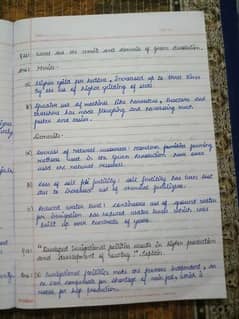 Q21) What are the merits and demerits of green revolution.
Ans: Merits:-
(i) Higher yield per hectare, Increased up to three times by the use of higher yielding of seeds.
(ii) Greater use of machines like harvesters, tractors and threshers has made ploughing and harvesting much faster and easier.
Demerits:-
(a) Overuse of natural resources: modern farming methods used in the green revolution have over used the natural resources.
(b) Loss of soil fertility: soil fertility has been lost due to increased use of chemical fertilizers.
(c) Reduced water level: continuous use of ground water for irrigation has reduced water levels which was built up over hundreds of years.
Q22) "Developed irrigational facilities results in higher production and development of country". Explain.
Ans: (i) Irrigational facilities make the farmers independent, so